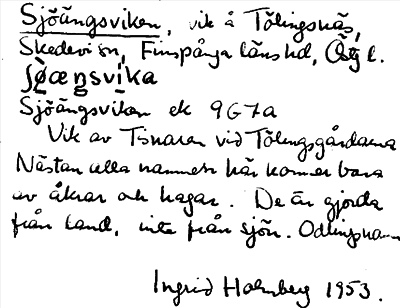 Sjöängsviken, vik å Tölingsnäs,
Skedevi sn, Finspånga läns hd, Östg l.
ʃø̀ængsvika
Sjöängsviken ek 9G7a
Vik av Tisnaren vid Tölingsgårdarna
Nästan alla namnen här kommer bara
av åkrar och hagar. De är gjorda
från land, inte från sjön. Odlingsnamn
Ingrid Holmberg 1953.